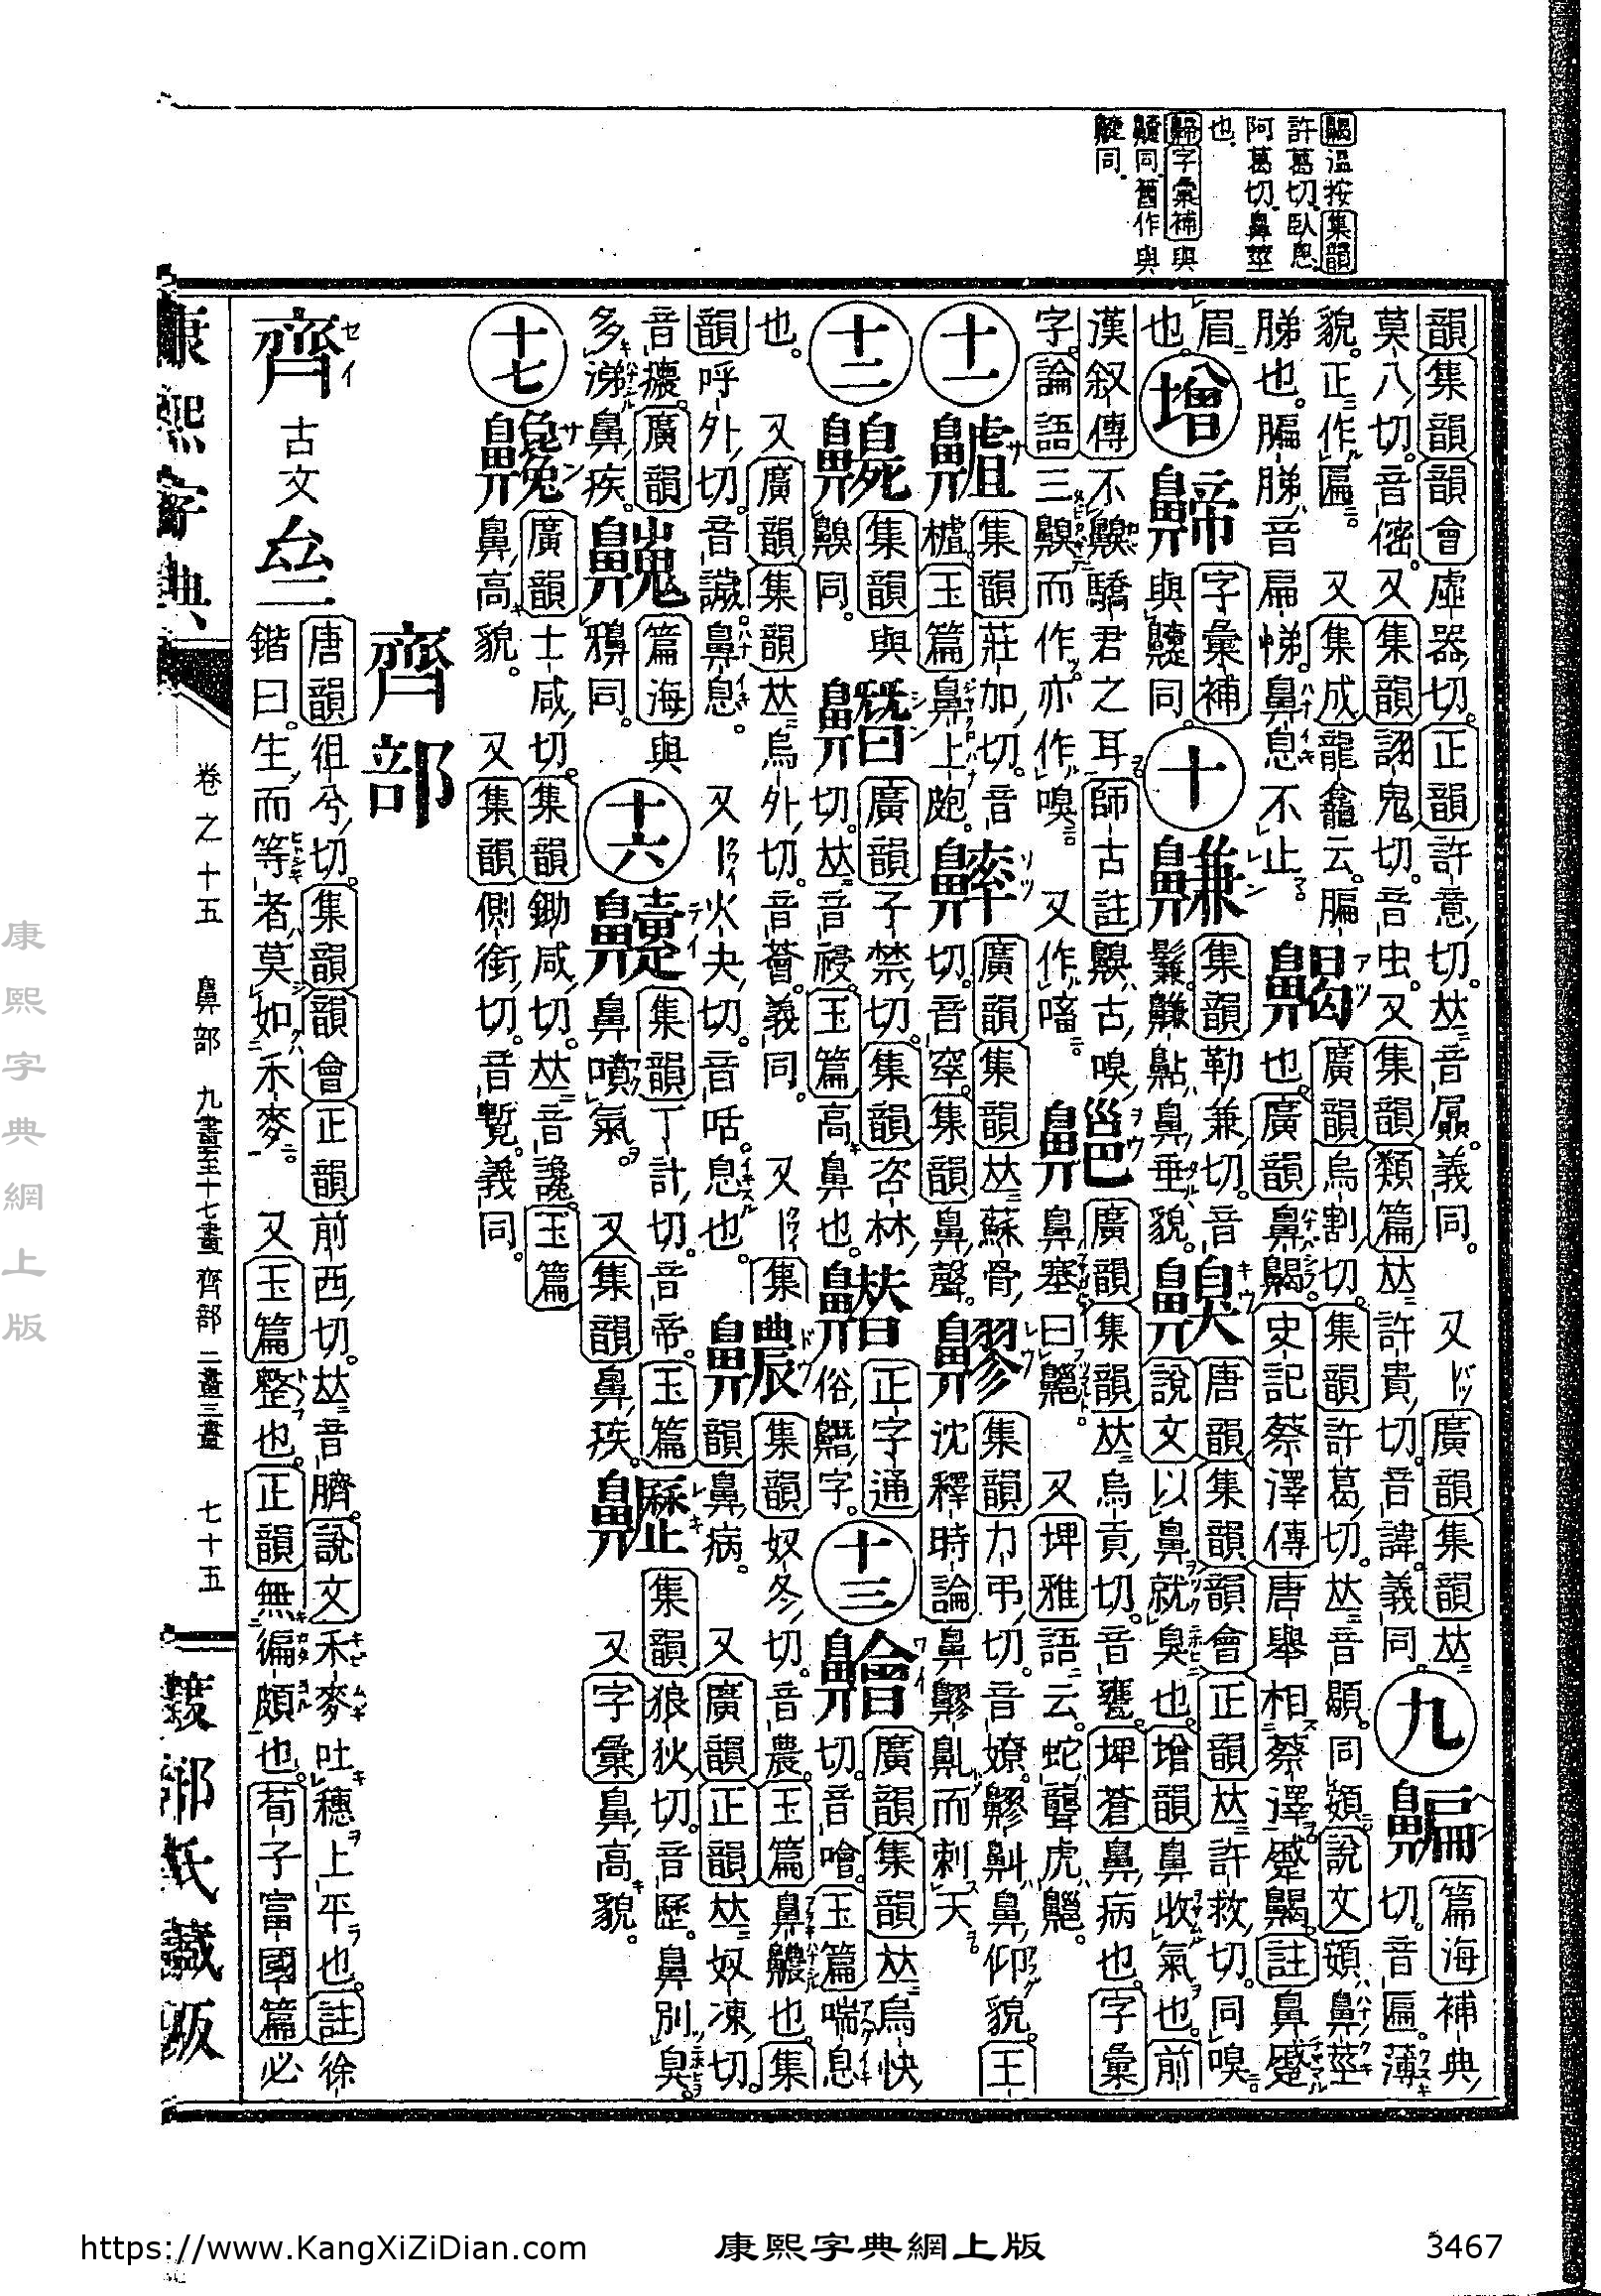 䶎溫按集韻
許葛切臥息
阿葛切鼻莖
也
字彙補與
同舊作與
同
韻集韻韻會虛器切。正韻許意切。𠀤音屭。義同。又廣韻集韻𠀤
莫八切。音傛。又集韻詡鬼切。音虫。又集韻類篇𠀤許貴切。音諱。義同。九
篇海補典
切。音匾。薄
貌。正作匾。又集成龍龕云。㾫
䏲也。㾫䏲音扁悌。鼻息不止。䶎
廣韻烏割切。集韻許葛切。𠀤音顯。同頞。說文頞鼻莖
也。廣韻鼻䶎。史記蔡澤傳唐舉相蔡澤蹙䶎。註鼻蹙
眉也。增八
字彙補
與嚏同。十鼸
集韻勒兼切。音
鬑。鼸鮎鼻垂貌。齅
唐韻集韻韻會正韻𠀤許救切。同嗅。
說文以鼻就臭也。增韻鼻收氣也。前
漢叙傳不齅驕君之耳師古註齅古嗅
字。論語三齅而作。亦作嗅。又作嗑。齆
廣韻集韻𠀤烏貢切。音甕。埤蒼鼻病也。字彙
鼻塞曰齆。又埤雅語云。蛇聾虎齆。
十一齇
集韻莊加切。音
樝。玉篇鼻上皰。
廣韻集韻𠀤蘇骨
切。音窣。集韻鼻聲。
集韻力弔切。音嫽。鼻仰貌。王
沈釋時論鼻而刺天。
十二
集韻與
齅同。
廣韻子禁切。集韻咨林
切。𠀤音祲。玉篇高鼻也。
正字通
俗字。
十三
廣韻集韻𠀤烏快
切。音噲。玉篇喘息
也。又廣韻集韻𠀤烏外切。音薈。義同。又集
韻呼外切。音譏。鼻息。又火夬切。音咶。息也。齈
集韻奴冬切。音農。玉篇鼻齈也。集
韻鼻病。又廣韻正韻𠀤奴凍切。
音癑。廣韻
多涕鼻疾。
篇海與
鴉同。十六嚏
集韻丁計切。音帝。玉篇
鼻噴氣。又集韻鼻疾。
集韻狼狄切。音歷。鼻別臭。
又字彙鼻高貌。
十七
廣韻士咸切。集韻鋤咸切。𠀤音讒。玉篇
鼻高貌。又集韻側銜切。音覽。義同。
齊部
齊古文亝
唐韻徂兮切。集韻韻會正韻前西切。𠀤音臍。說文禾麥吐穗上平也。註徐
鍇曰。生而等者莫如禾麥。又玉篇整也。正韻無偏頗也。荀子富國篇必
康熙字典
卷之十五 鼻部 九畫至十七畫 齊部 二畫三畫 七十五
渡部氏藏版
康熙字典網上版
https://www.KangXiZiDian.com
康熙字典網上版
3467